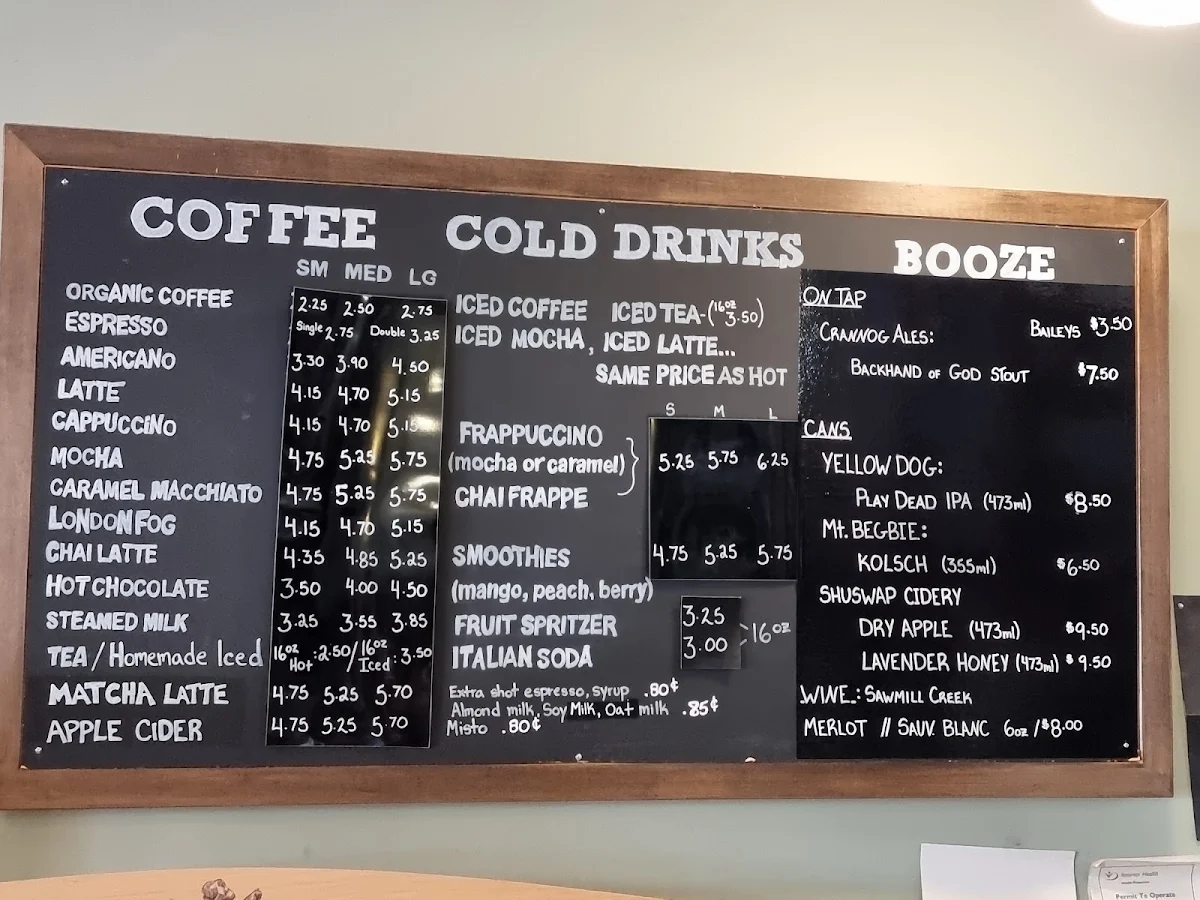 COFFEE
SM MED LG
ORGANIC COFFEE 2.25 2.50 2.75
ESPRESSO Single 2.75 Double 3.25
AMERICANO 3.30 3.90 4.50
LATTE 4.15 4.70 5.15
CAPPUCCINO 4.15 4.70 5.15
MOCHA 4.75 5.25 5.75
CARAMEL MACCHIATO 4.75 5.25 5.75
LONDON FOG 4.15 4.70 5.15
CHAI LATTE 4.35 4.85 5.25
HOT CHOCOLATE 3.50 4.00 4.50
STEAMED MILK 3.25 3.55 3.85
TEA / Homemade Iced 16oz Hot: 2.50 / 16oz Iced: 3.50
MATCHA LATTE 4.75 5.25 5.70
APPLE CIDER 4.75 5.25 5.70
COLD DRINKS
ICED COFFEE ICED TEA-(16oz 3.50)
ICED MOCHA, ICED LATTE...
SAME PRICE AS HOT
S M L
FRAPPUCCINO
(mocha or caramel) 5.25 5.75 6.25
CHAI FRAPPE
SMOOTHIES 4.75 5.25 5.75
(mango, peach, berry)
FRUIT SPRITZER 3.25
ITALIAN SODA 3.00 >16oz
Extra shot espresso, syrup .80¢
Almond milk, Soy Milk, Oat milk .85¢
Misto .80¢
BOOZE
ON TAP
CRANNOG ALES: BAILEYS $3.50
BACKHAND OF GOD STOUT $7.50
CANS
YELLOW DOG:
PLAY DEAD IPA (473ml) $8.50
Mt. BEGBIE:
KOLSCH (355ml) $6.50
SHUSWAP CIDERY
DRY APPLE (473ml) $9.50
LAVENDER HONEY (473ml) $9.50
WINE: SAWMILL CREEK
MERLOT // SAUV. BLANC 6oz /$8.00
Permit To Operate